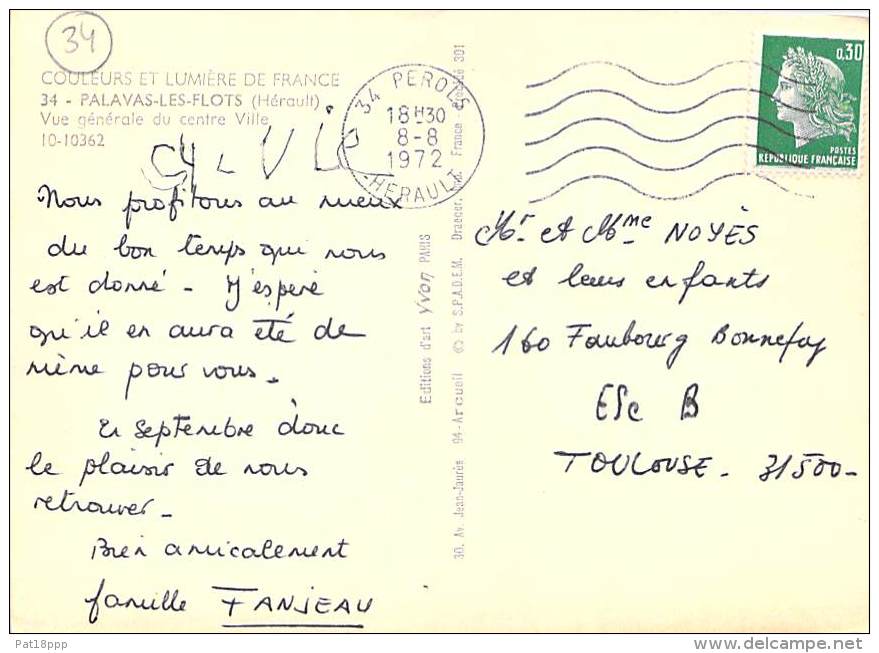 34
COULEURS ET LUMIÈRE DE FRANCE
34 - PALAVAS-LES-FLOTS (Hérault)
Vue générale du centre Ville
10-10362
34 PEROLS
18H30
8-8
1972
HERAULT
0,30
POSTES
REPUBLIQUE FRANÇAISE
Nous profitons au mieux
du bon temps qui nous
est donné - J'espère
qu'il en aura été de
même pour vous -
En Septembre donc
le plaisir de nous
retrouver -
Bien amicalement
famille FANJEAU
Editions d'art Yvon PARIS
30, Av. Jean-Jaurès 94-Arcueil © by S.P.A.D.E.M. Draeger, France - 301
Mr et Mme NOYÈS
et leurs enfants
160 Faubourg Bonnefoy
ESc B
TOULOUSE - 31500 -
Pat18ppp
delcampe.net